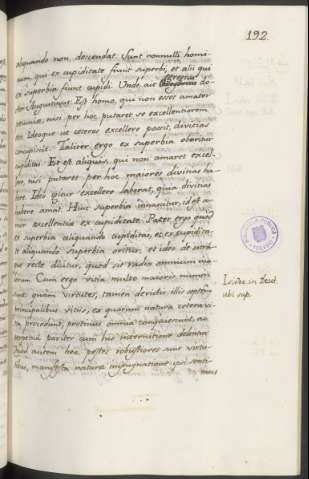 192.
aliquando non descendat. Sunt nonnulli homi
num, qui ex cupiditate fiunt superbi, et alij qui
ex superbia fiunt cupidi. Unde ait
egregius do-
Augustinus. Est homo, qui non esset amator
pecuniæ, nisi per hoc putaret se excellentiorem
Ideoque ut ceteros excellere possit, divitias
concupiscit. Taliter ergo ex superbia oboritur
cupiditas. Et est aliquis, qui non amaret excel-
nisi putaret per hoc maiores divitias ha-
bere. Ideo igitur excellere laborat, quia divitias
habere amat. Huic superbia innascitur, id est a-
mor excellentiæ ex cupiditate. Patet ergo quod
ex superbia aliquando cupiditas, et ex cupidita-
te aliquando superbia oritur, et ideo de utra-
que recte dicitur, quod sit radix omnium ma-
lorum. Cum ergo vitia multo maioris numeri
sint quam virtutes, tamen devictis illis septem
principalibus vitijs, ex quorum natura cetera vi-
tia procedunt, protinus omnia
pariter cum his
autem hec pestes robustiores sunt virtu-
tibus, manifesta natura
Isidor. in Deut.
ubi sup.